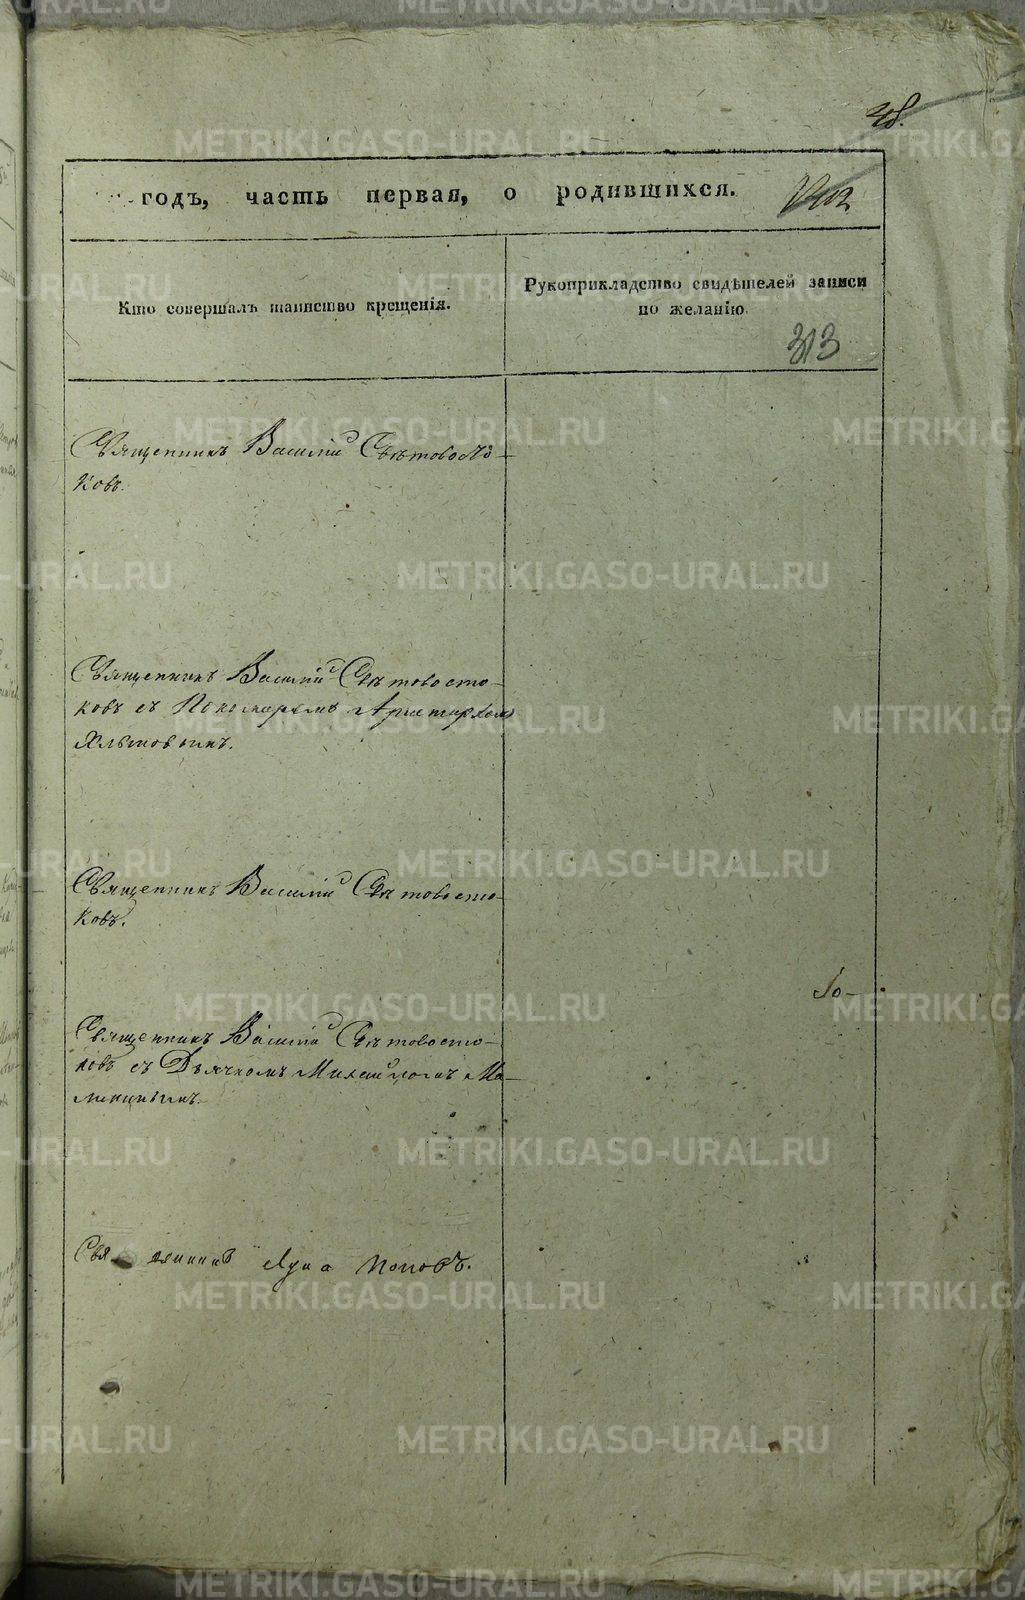 48.
годъ, часть первая, о родившихся.
Кто совершалъ таинство крещенія.
Рукоприкладство свидѣтелей записи
по желанію.
313
Священникъ Василій Свѣтовосто-
ковъ.
Священникъ Василій Свѣтовосто-
ковъ съ Пономаремъ Аристархомъ
Священникъ Василій Свѣтовосто-
ковъ.
Священникъ Василій Свѣтовосто-
ковъ съ Дьячкомъ Михаиломъ Ма-
Свя нникъ Лука Поповъ.
METRIKI.GASO-URAL.RU